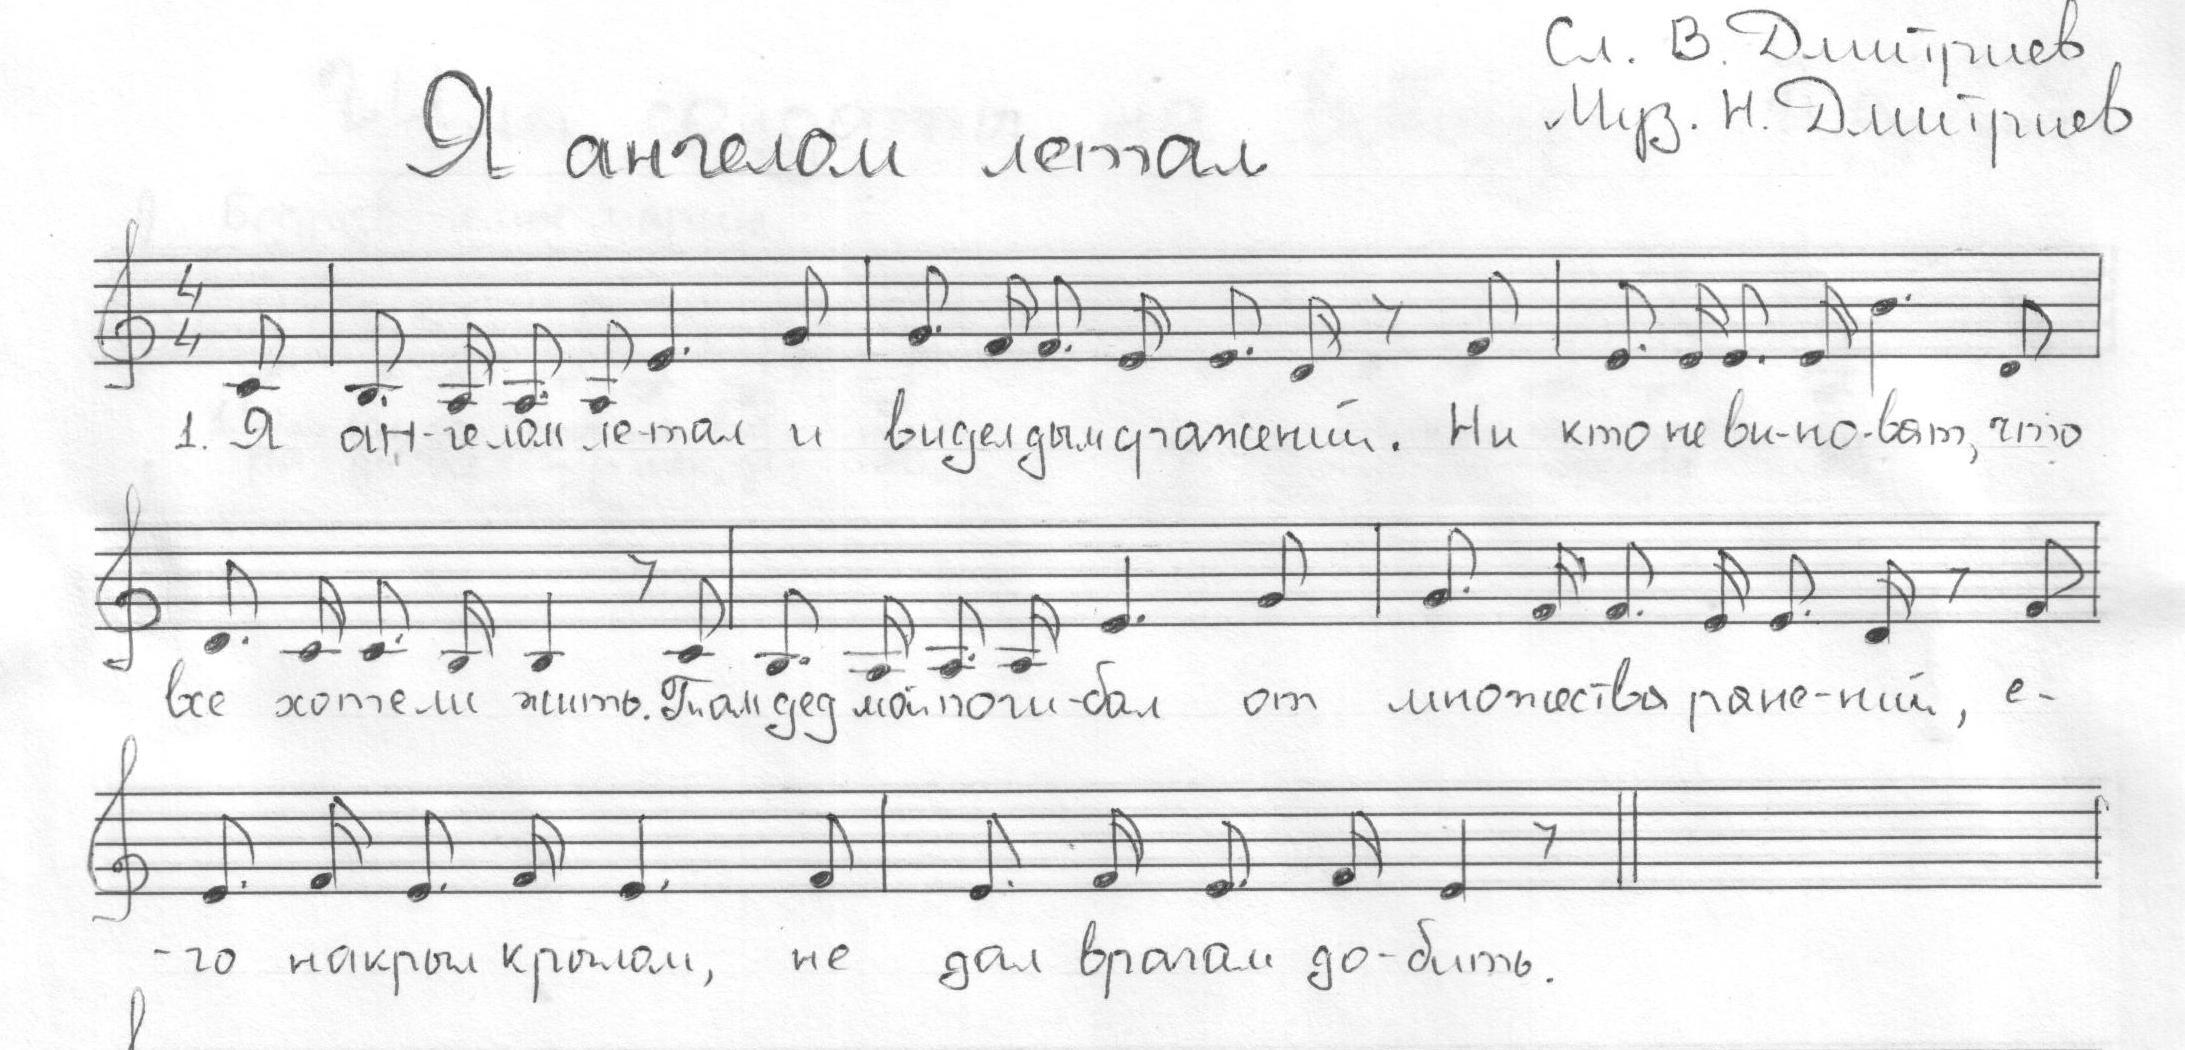 Сл. В. Дмитриев
Муз. Н. Дмитриев
Я ангелом летал
4
4
1. Я ан-гелом ле-тал и видел дым сражений. Ни кто не ви-но-ват, что
все хотели жить. Там дед мой поги-бал от множества ране-ний, е-
-го накрыл крылом, не дал врагам до-бить.